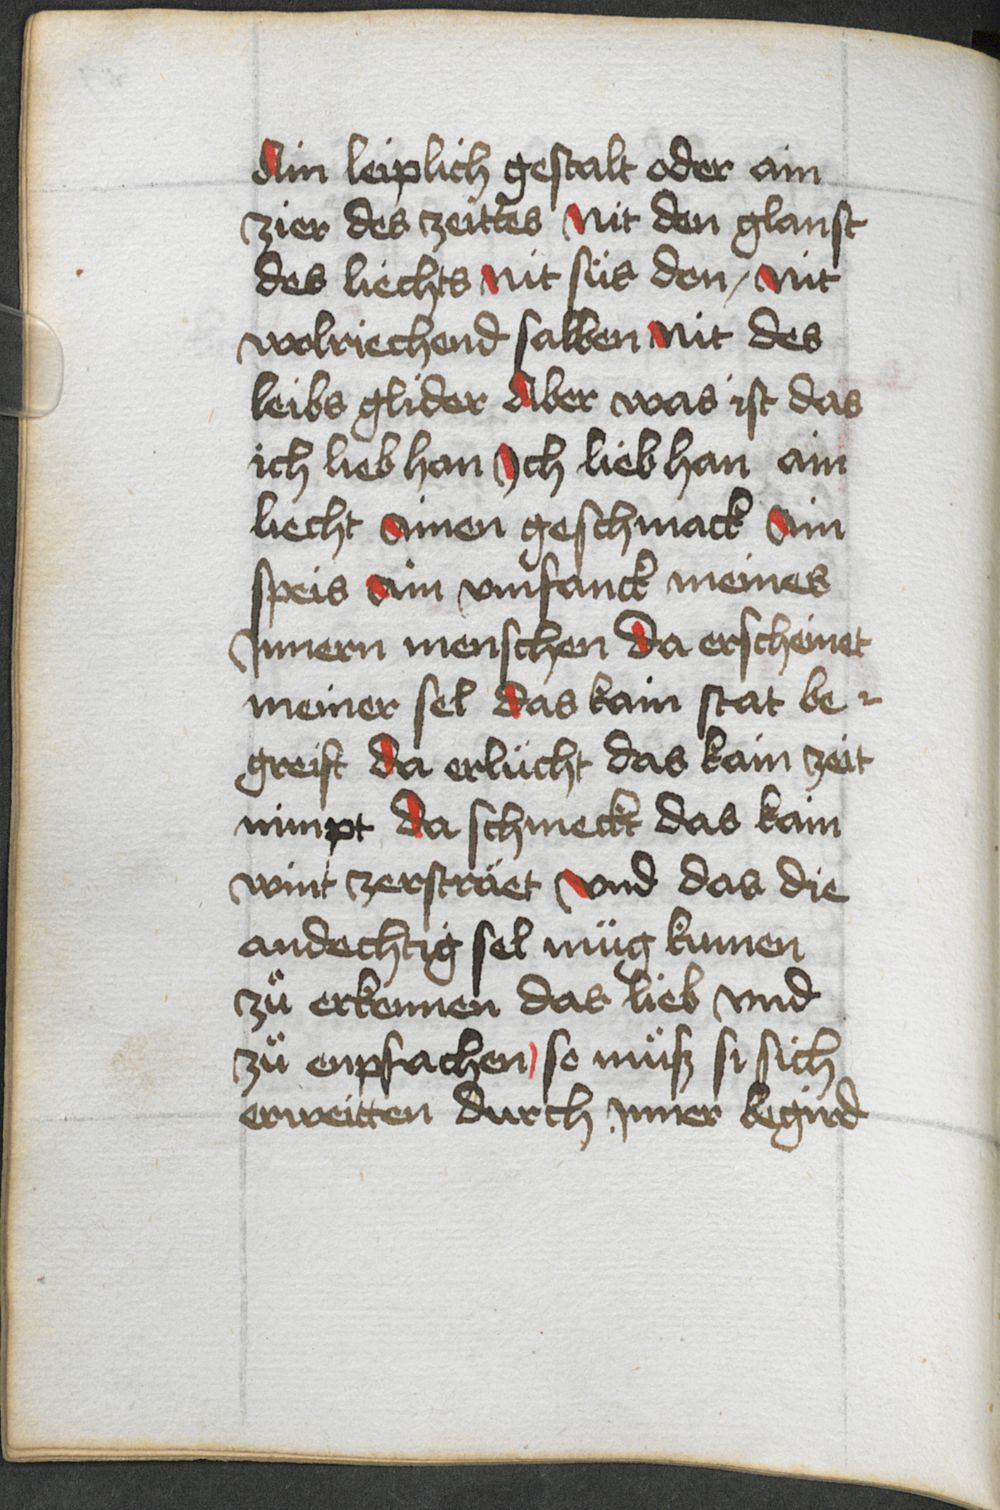 Ain leiplich gestalt oder ain
zier des zeittes Nit den glanst
des liechts Nit süs den / Nit
wolriechend salben Nit des
leibs glider Aber was ist das
ich lieb han Ich lieb han ain
liecht Ainen geschmack Ain
speis Ain vmfanck meines
Innern menschen Da erscheinet
meiner sel Das kain stat be-
greift Da erlücht das kain zeit
nimpt Da schmeckt das kain
wint zersträet Vnd das die
andechtig sel müg kumen
zü erkennen das lieb vnd
zü enpfachen / so müß si sich
erweitten durch Inner begird